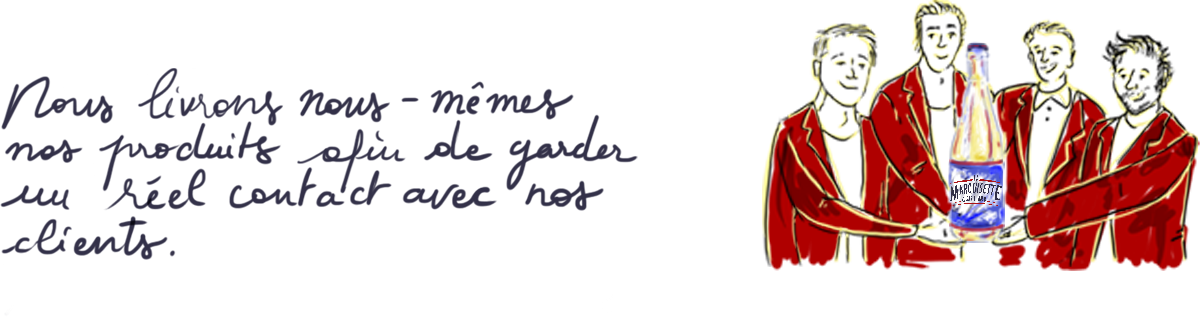 Nous livrons nous-mêmes
nos produits afin de garder
un réel contact avec nos
clients.
MARCOUSETTE